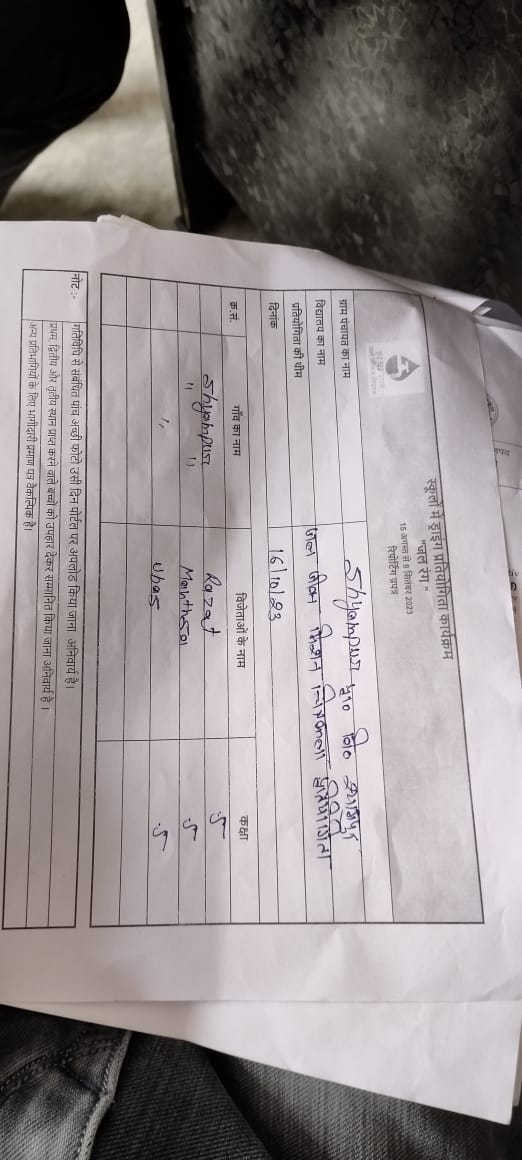 स्कूलों में ड्राइंग प्रतियोगिता कार्यक्रम
"जल रंग"
15 अगस्त से 8 सितंबर 2023
रिपोर्टिंग प्रपत्र
ग्राम पंचायत का नाम Shyampur
विद्यालय का नाम प्रा० वि०
प्रतियोगिता की थीम जल जीवन मिशन चित्रकला प्रतियोगिता
दिनांक 16/10/23
क्र.सं. गाँव का नाम विजेताओं के नाम कक्षा
Shyampur Razat 5
" " 5
" 5
नोट :- गतिविधि से संबंधित पांच अच्छी फोटो उसी दिन पोर्टल पर अपलोड किया जाना अनिवार्य है।
प्रथम, द्वितीय और तृतीय स्थान प्राप्त करने वाले बच्चों को उपहार देकर सम्मानित किया जाना अनिवार्य है।
अन्य प्रतिभागियों के लिए भागीदारी प्रमाण पत्र वैकल्पिक है।